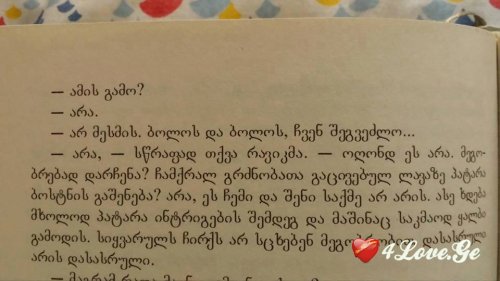 — ამის გამო?
— არა.
— არ მესმის. ბოლოს და ბოლოს, ჩვენ შეგვეძლო...
— არა, — სწრაფად თქვა რავიკმა. — ოღონდ ეს არა. მეგო-
ბრებად დარჩენა? ჩამქრალ გრძნობათა გაცივებულ ლავაზე პატარა
ბოსტნის გაშენება? არა, ეს ჩემი და შენი საქმე არ არის. ასე ხდება
მხოლოდ პატარა ინტრიგების შემდეგ და მაშინაც საკმაოდ ყალბი
გამოდის. სიყვარულს ჩირქს არ სცხებენ მეგობრობით. დასასრული
არის დასასრული.
4Love.Ge